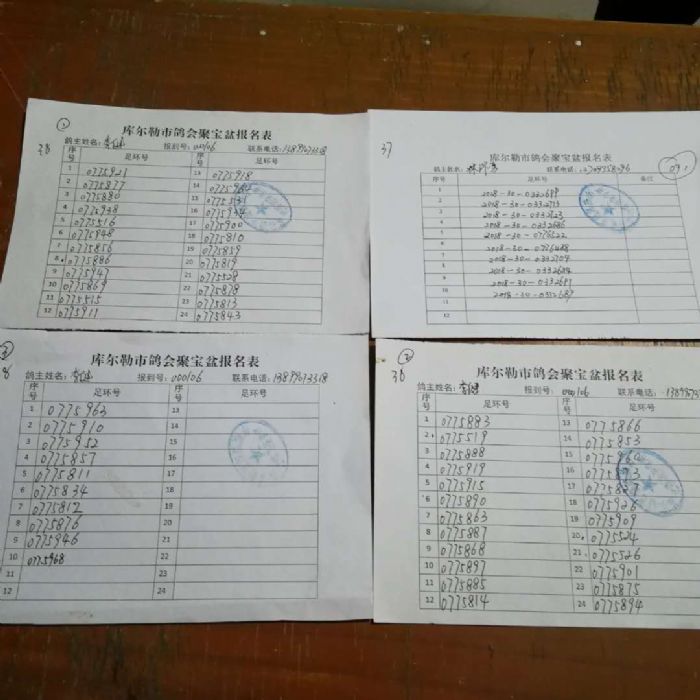 ①
38
库尔勒市鸽会聚宝盆报名表
鸽主姓名: 报到号:00106 联系电话:
序号 足环号 序号 足环号
1 0775921 13 0775918
2 0775877 14
3 0775880 15
4 0775938 16
5 0775516 17 0775900
6 0775848 18 0775810
7 0775856 19 0775859
8 0775886 20 0775819
9 0775947 21 0775528
10 0775869 22 0775878
11 0775515 23 0775813
12 0775911 24 0775843
37
库尔勒市鸽会聚宝盆报名表
鸽主姓名: 联系电话:
序号 足环号 备注
1 2018-30-0332699
2
3
4 2018-30-0332686
5
6
7 2018-30-0332704
8 2018-30-0332684
9
10 2018-30-0332687
11
12
③
8
库尔勒市鸽会聚宝盆报名表
鸽主姓名: 报到号:00106 联系电话:13899073318
序号 足环号 序号 足环号
1 0775963 13
2 0775910 14
3 0775952 15
4 0775857 16
5 0775811 17
6 0775834 18
7 0775812 19
8 0775876 20
9 0775946 21
10 0775968 22
11 23
12 24
②
38
库尔勒市鸽会聚宝盆报名表
鸽主姓名: 报到号:00106 联系电话:
序号 足环号 序号 足环号
1 0775883 13 0775866
2 0775519 14 0775853
3 0775888 15
4 0775919 16
5 0775915 17
6 0775890 18 0775926
7 0775863 19 0775909
8 0775887 20 0775524
9 0775868 21 0775526
10 0775897 22 0775901
11 0775885 23 0775875
12 0775814 24 0775894